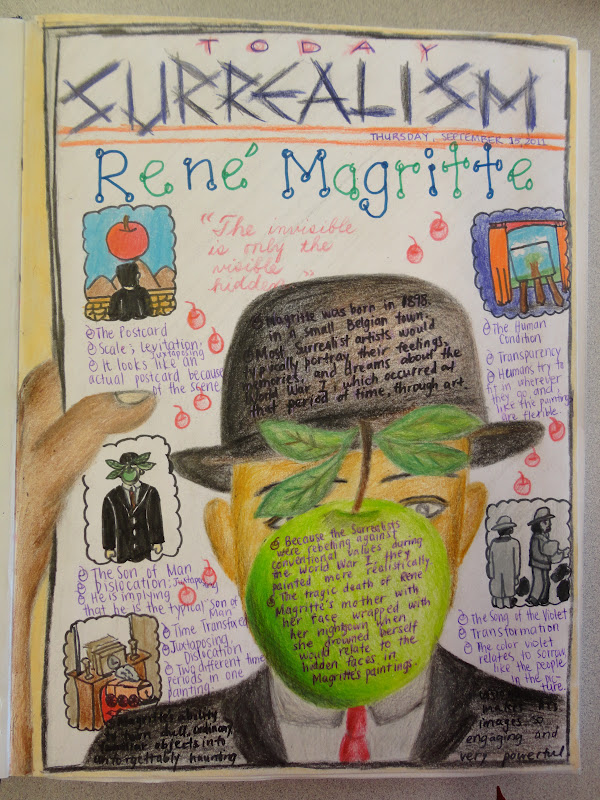 TODAY
SURREALISM
THURSDAY, SEPTEMBER 15, 2011
René Magritte
"The invisible
is only the
visible
hidden."
The Postcard
Scale; Levitation;
Juxtaposing
It looks like an
actual postcard because
of the scene.
The Human
Condition
Transparency
Humans try to
fit in wherever
they go, and
like the painting
are flexible.
Magritte was born in 1898,
in a small Belgian town.
Most Surrealist artists would
typically portray their feelings,
memories, and dreams about the
World War I, which occurred at
that period of time, through art.
The Son of Man
Dislocation; Juxtaposing
He is implying
that he is the typical "son of
Man"
Because the Surrealists
were rebelling against
conventional values during
the World War I, they
painted more realistically
The tragic death of René
Magritte's mother with
her face wrapped with
her nightgown when
she drowned herself
would relate to the
hidden faces in
Magritte's paintings.
Time Transfixed
Juxtaposing,
Dislocation
Two different time
periods in one
painting
The Song of the Violet
Transformation
The color violet
relates to sorrow
like the people
in the pic-
ture.
Magritte's ability
to turn dull, ordinary,
familiar objects into
unforgettably haunting
makes his
images so
engaging and
very powerful